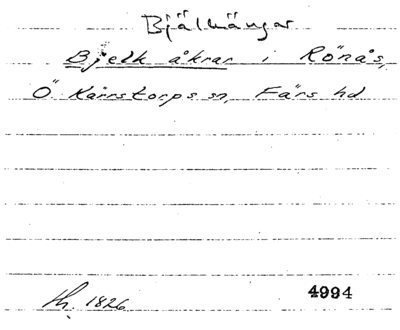 Bjälkängar
Bjelk åkrar i Rönås,
Ö Kärrstorps sn, Färs hd
1826
4994